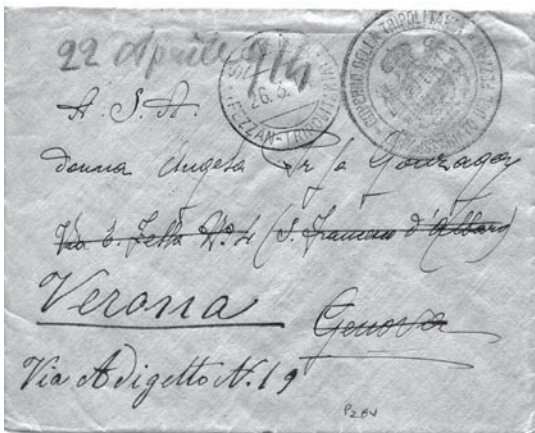 22 Aprile 914
26.3.
FEZZAN-TRIPOLI
GOVERNO DELLA TRIPOLITANIA
A. S. A.
donna Angela
Via
N. 4 (S. Francesco d'Albaro)
Verona
Genova
Via Adigetto N. 19